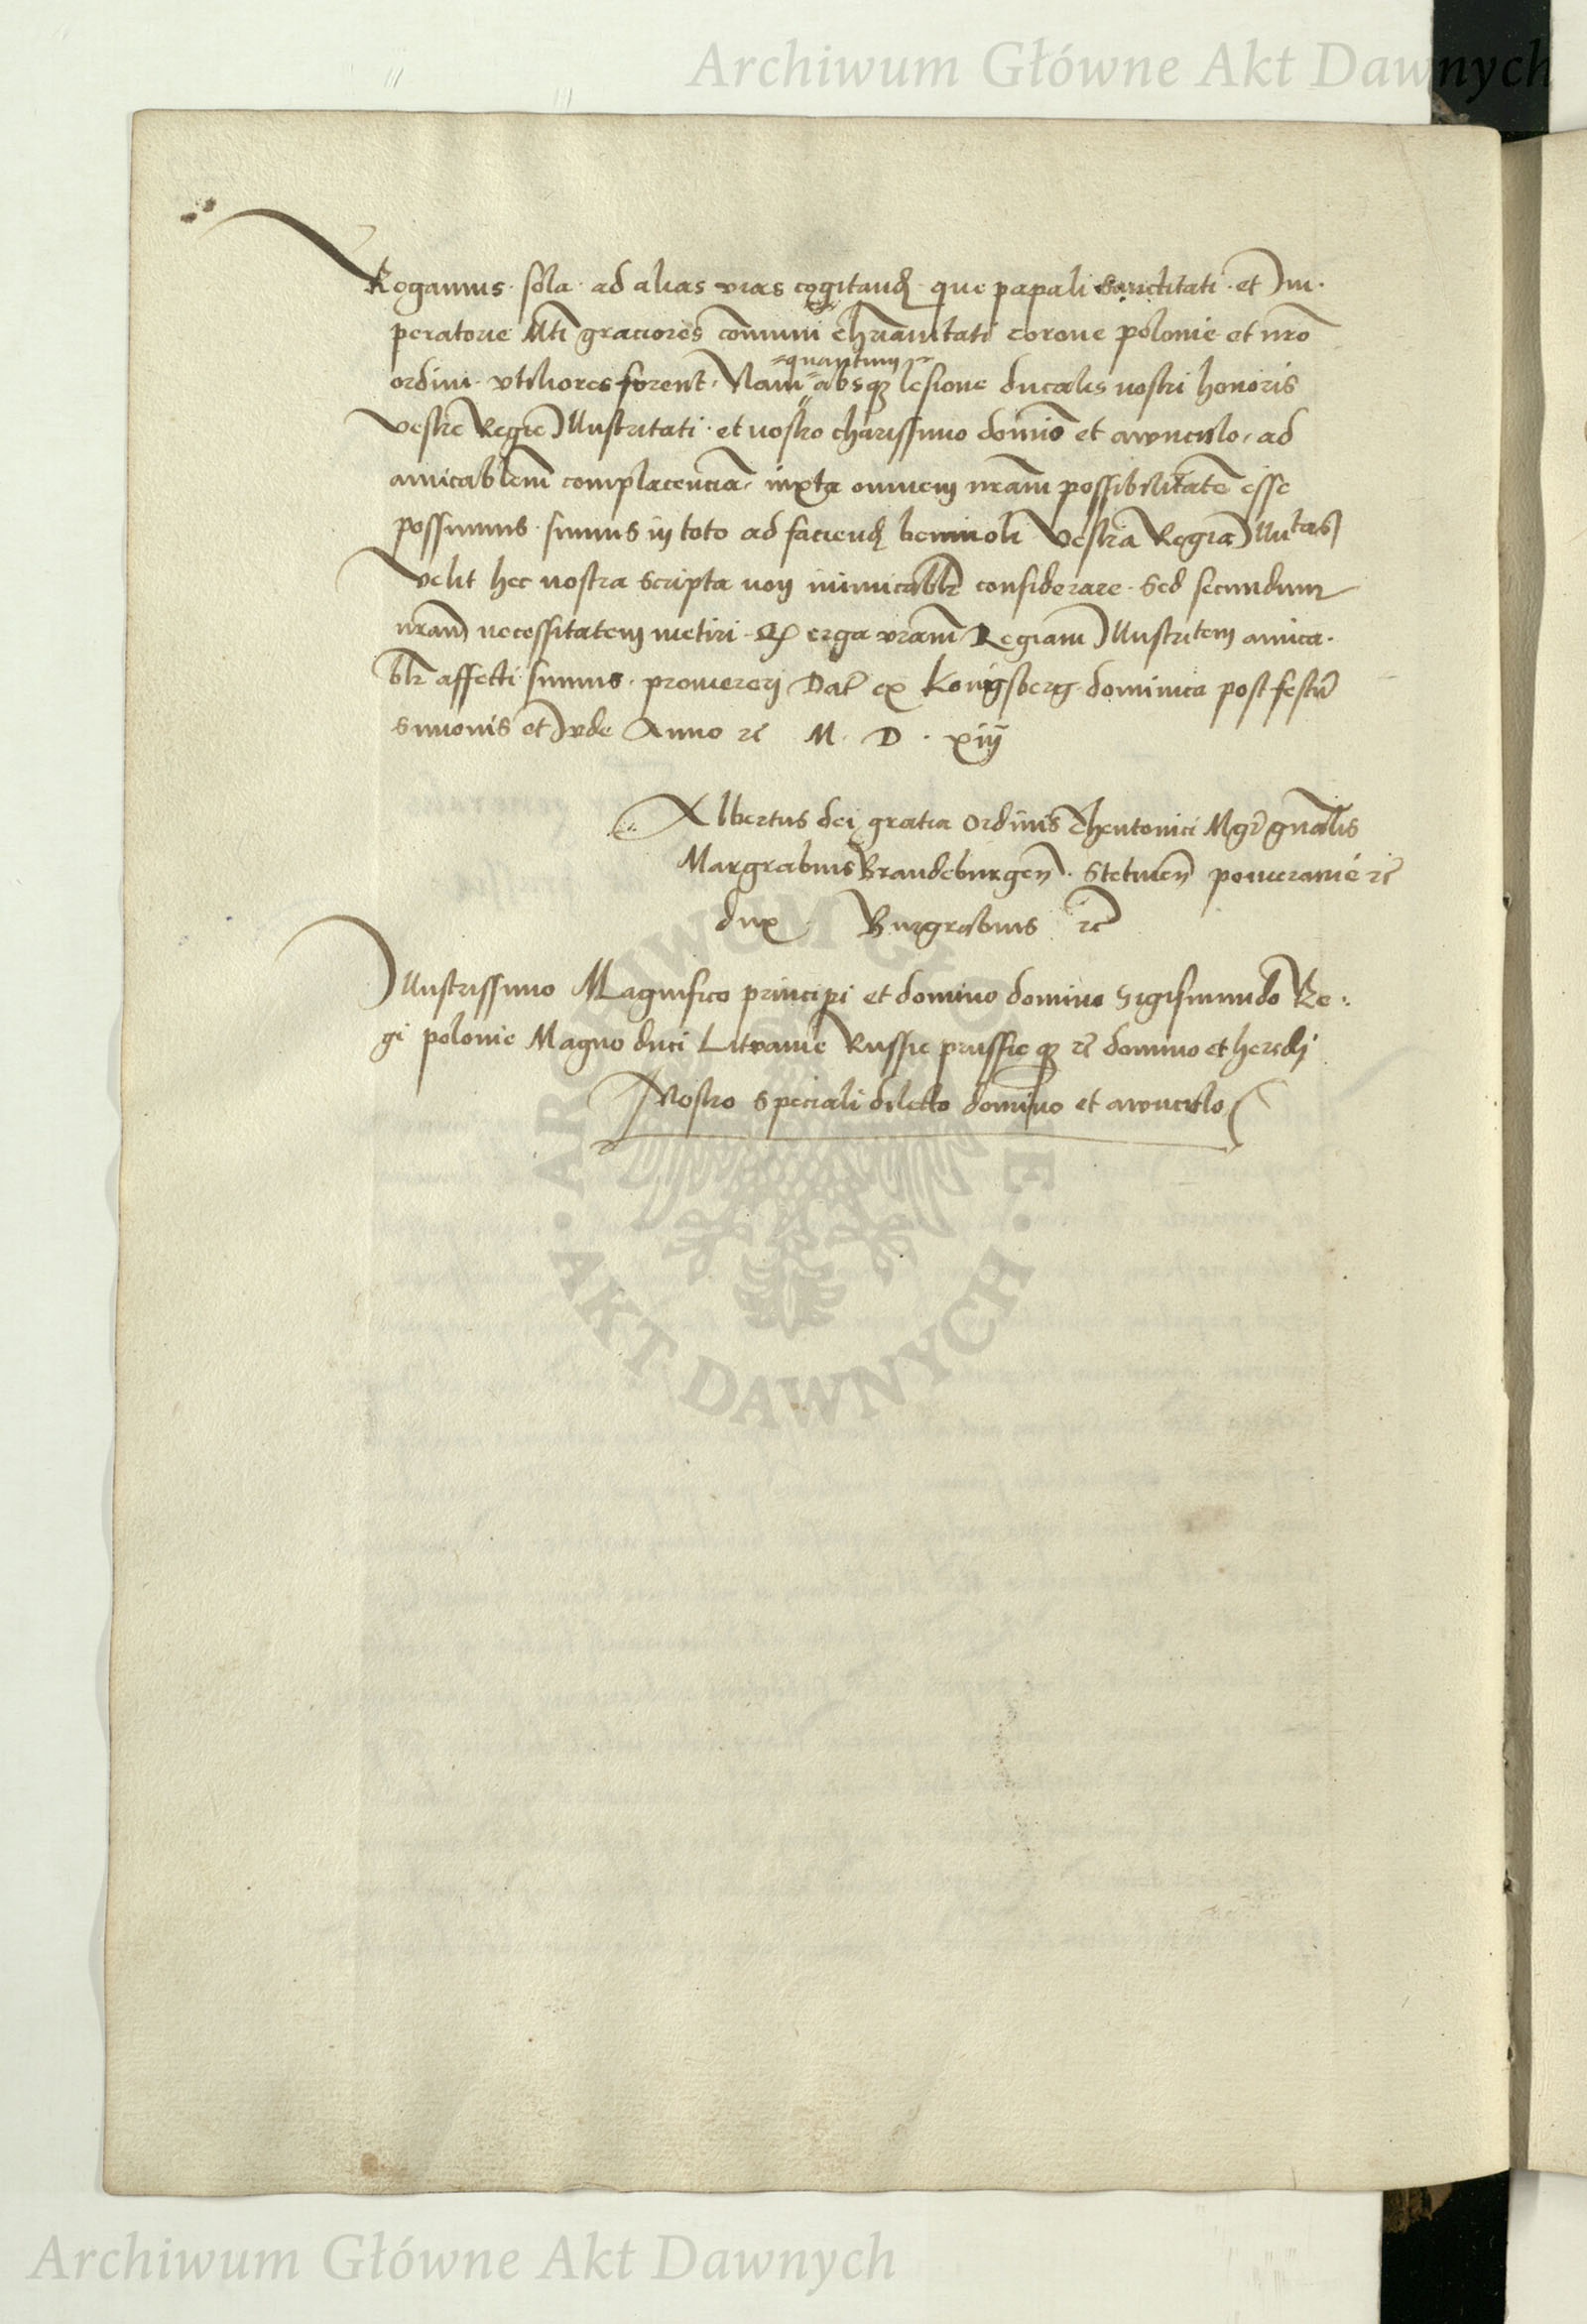 Archiwum Główne Akt Dawnych
Rogamus · sola · ad alias vias cogitand · que papali sanctitati · et Im·
peratorie Mti graciores comuni christianitati corone polonie et nrō
ordini · vtiliores forent · Nam =quantum= absq lesione ducalis nostri honoris
vestre Regie Illustritati · et nostro charissimo domīo et awnculo, ad
amicablem complacenciā, iuxta omnem nram possibilitatē esse
possimus · simus in toto ad faciend beniuoli Vestra Regia Illutas
velit hec nostra scripta non inimicablr considerare · Sed secundum
nram necessitatem metiri · Q erga vram Regiam Illustritem amica·
blr affecti simus · promereri Dat ex Konigsberg dominica post festū
Simonis et Jude Anno rc M · D · xiij
Albertus dei gratia Ordinis Theutonici Mgr gnalis
Margrabius Brandeburgen · Stetinen pomeranie rc
dux Burgrabius rc
Illustrissimo Magnifico principi et domino domino Sigismundo Re·:
gi polonie Magno duci Litvanie Russie prussie q rc domino et heredi
Nostro speciali dilecto domino et awnculo
ARCHIWUM GŁÓWNE · AKT DAWNYCH ·
Archiwum Główne Akt Dawnych